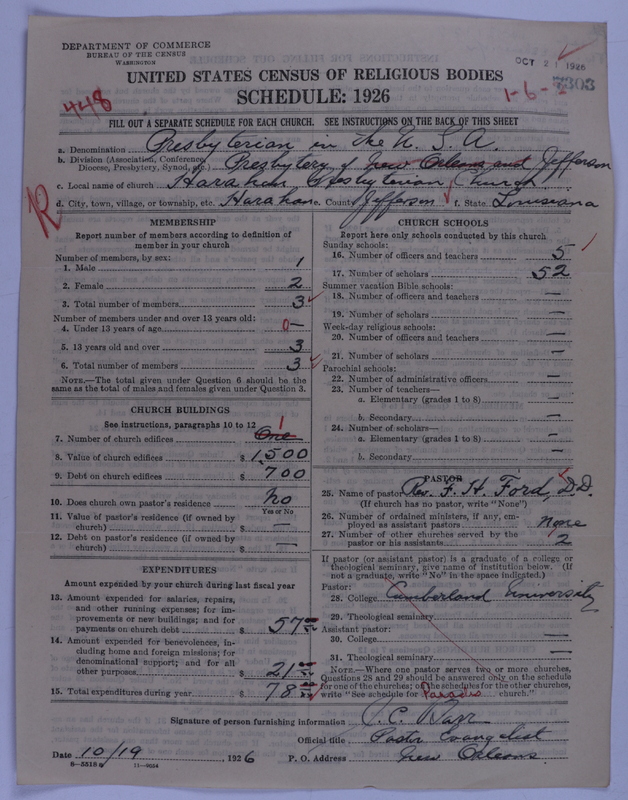 DEPARTMENT OF COMMERCE
BUREAU OF THE CENSUS
WASHINGTON
OCT 2 1926
7303
448
1-6-
UNITED STATES CENSUS OF RELIGIOUS BODIES
SCHEDULE: 1926
FILL OUT A SEPARATE SCHEDULE FOR EACH CHURCH. SEE INSTRUCTIONS ON THE BACK OF THIS SHEET
a. Denomination Presbyterian in the U. S. A.
b. Division (Association, Conference, Diocese, Presbytery, Synod, etc.) Presbytery of New Orleans and Jefferson
c. Local name of church Harahan Presbyterian Church
d. City, town, village, or township, etc. Harahan e. County Jefferson f. State Louisiana
R
MEMBERSHIP
Report number of members according to definition of
member in your church
Number of members, by sex:
1. Male 1
2. Female 2
3. Total number of members 3
Number of members under and over 13 years old:
4. Under 13 years of age 0 —
5. 13 years old and over 3
6. Total number of members 3
NOTE.—The total given under Question 6 should be
the same as the total of males and females given under Question 3.
CHURCH BUILDINGS
See instructions, paragraphs 10 to 12
7. Number of church edifices One 1
8. Value of church edifices $ 1500
9. Debt on church edifices $ 700
10. Does church own pastor's residence No
Yes or No
11. Value of pastor's residence (if owned by
church) $ —
12. Debt on pastor's residence (if owned by
church) $ —
EXPENDITURES
Amount expended by your church during last fiscal year
13. Amount expended for salaries, repairs,
and other running expenses; for im-
provements or new buildings; and for
payments on church debt $ 57
14. Amount expended for benevolences, in-
cluding home and foreign missions; for
denominational support; and for all
other purposes $ 21
15. Total expenditures during year $ 78
CHURCH SCHOOLS
Report here only schools conducted by this church
Sunday schools:
16. Number of officers and teachers 5
17. Number of scholars 52
Summer vacation Bible schools:
18. Number of officers and teachers —
19. Number of scholars —
Week-day religious schools:
20. Number of officers and teachers —
21. Number of scholars —
Parochial schools:
22. Number of administrative officers —
23. Number of teachers—
a. Elementary (grades 1 to 8) —
b. Secondary —
24. Number of scholars—
a. Elementary (grades 1 to 8) —
b. Secondary —
PASTOR
25. Name of pastor Rev. F. H. Ford, D.D.
(If church has no pastor, write "None")
26. Number of ordained ministers, if any, em-
ployed as assistant pastors None
27. Number of other churches served by the
pastor or his assistants 2
If pastor (or assistant pastor) is a graduate of a college or
theological seminary, give name of institution below. (If
not a graduate, write "No" in the space indicated.)
Pastor:
28. College Cumberland University
29. Theological seminary
Assistant pastor:
30. College —
31. Theological seminary —
NOTE.—Where one pastor serves two or more churches,
Questions 28 and 29 should be answered only on the schedule
for one of the churches; on the schedules for the other churches,
write "See schedule for Paradis church."
Signature of person furnishing information
Official title Pastor Evangelist
Date 10/19, 1926 P. O. Address New Orleans
8—5518 a 11—9654